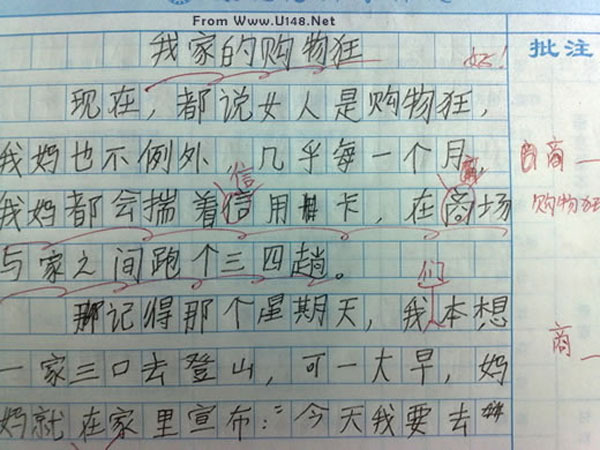 From Www.U148.Net
我家的购物狂
好!
批注
现在，都说女人是购物狂，
我妈也不例外 几乎每一个月，
商
信
我妈都会揣着信用卡，在商场
购物狂
与家之间跑个三四趟。
们
那记得那个星期天，我本想
商
一家三口去登山，可一大早，妈
妈就在家里宣布：“今天我要去